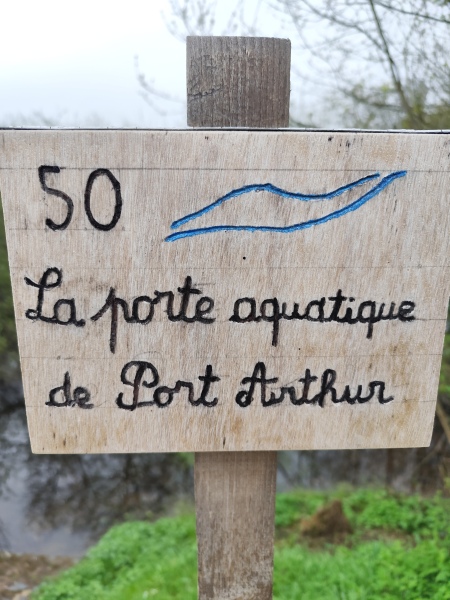 50
La porte aquatique
de Port Arthur